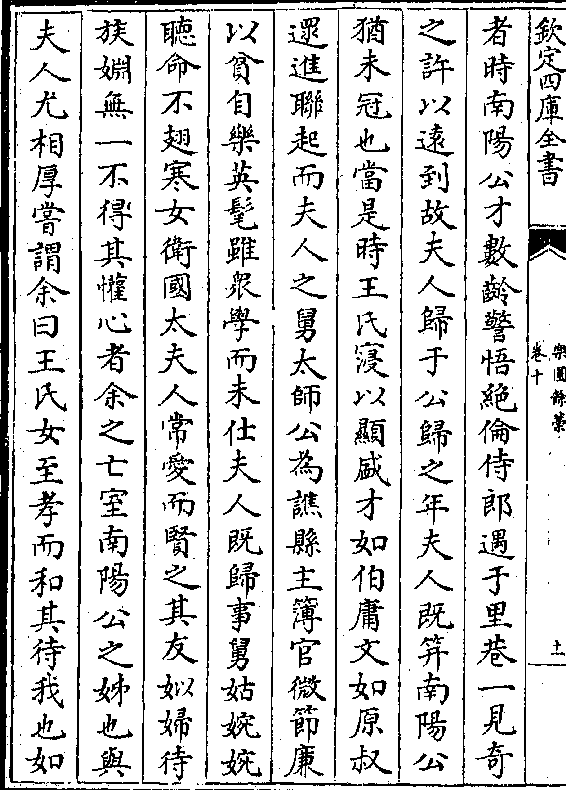 欽定四庫全書
樂圃餘藁
卷十
十一
者時南陽公才數齡警悟絶倫侍郎遇于里巷一見奇
之許以遠到故夫人歸于公歸之年夫人既笄南陽公
猶未冠也當是時王氏寖以顯盛才如伯庸文如原叔
遝進聯起而夫人之舅太師公為譙縣主簿官微節廉
以貧自樂英髦雖衆學而未仕夫人既歸事舅姑婉婉
聽命不翅寒女衛國太夫人常愛而賢之其友姒婦待
族婣無一不得其懽心者余之亡室南陽公之姊也與
夫人尤相厚嘗謂余曰王氏女至孝而和其待我也如